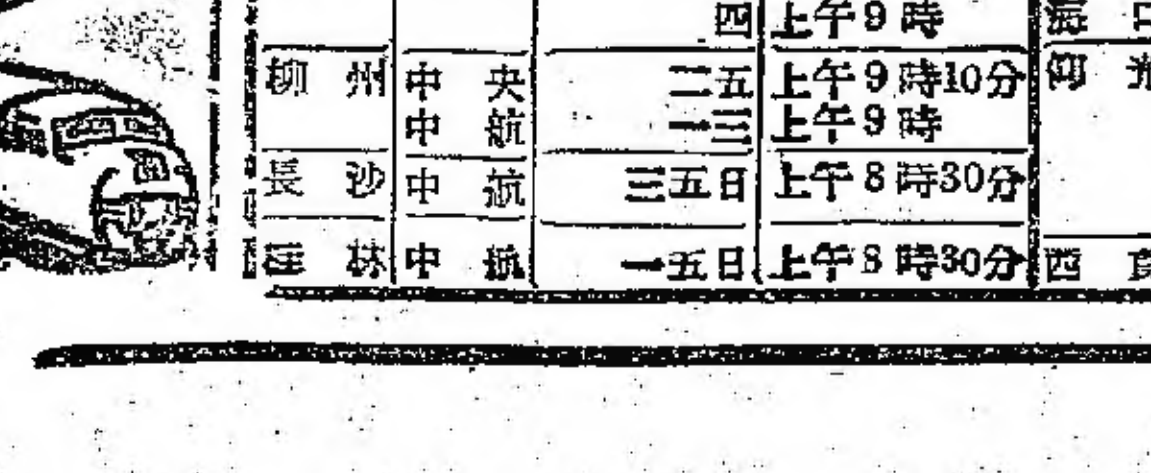 四 上午9時 海口
柳州 中央 二五 上午9時10分
中航 一三 上午9時
長沙 中航 三五日 上午8時30分
桂林 中航 一五日 上午8時30分 西